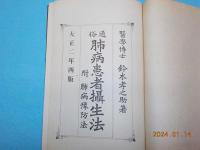 醫學博士 鈴木孝之助著
通俗 肺病患者攝生法
附 肺病豫防法
大正二年再版
2024.01.14